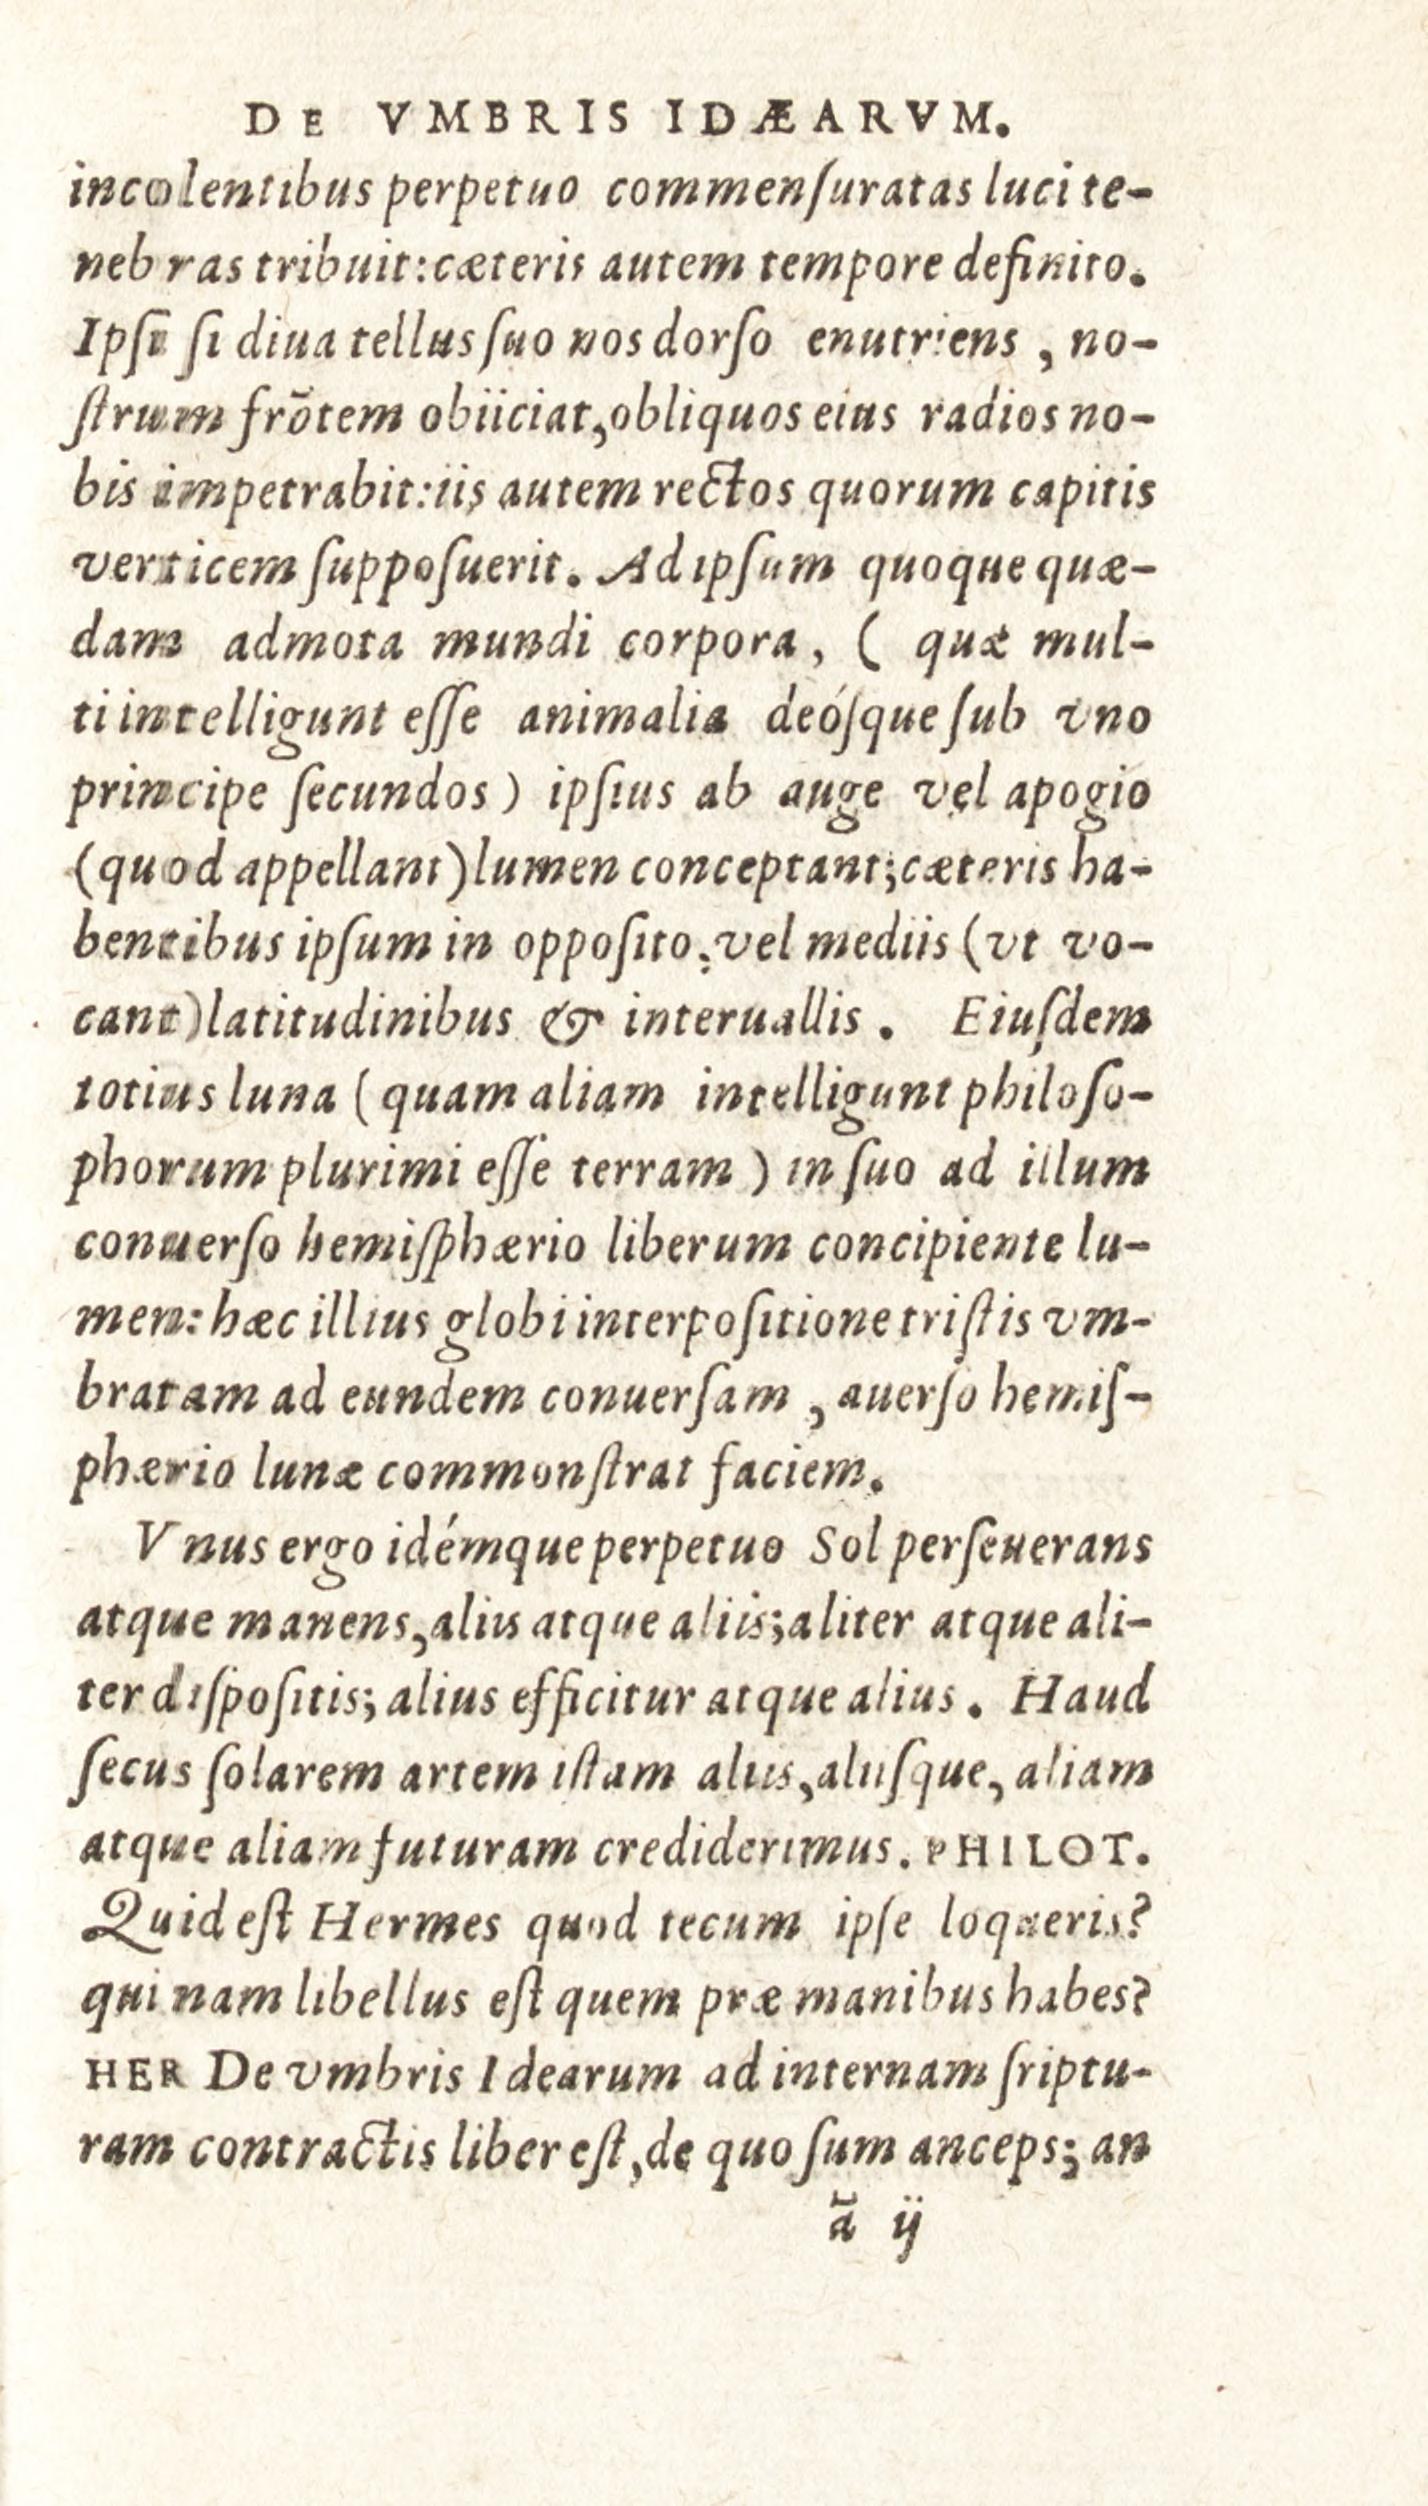 DE VMBRIS IDÆARVM.
incolentibus perpetuo commenſuratas luci te-
neb ras tribuit:cæteris autem tempore definito.
Ipſi ſi diua tellus ſuo nos dorſo enutriens , no-
ſtrum frōtem obiiciat,obliquos eius radios no-
bis impetrabit:iis autem rectos quorum capitis
verticem ſuppoſuerit. Ad ipſum quoque quæ-
dam admota mundi corpora, ( quæ mul-
ti intelligunt eſſe animalia deóſque ſub vno
principe ſecundos) ipſius ab auge vel apogio
(quod appellant)lumen conceptant;cæteris ha-
bentibus ipſum in oppoſito;vel mediis (vt vo-
cant)latitudinibus & interuallis . Eiuſdem
totius luna ( quam aliam intelligunt philoſo-
phorum plurimi eſſe terram ) in ſuo ad illum
conuerſo hemiſphærio liberum concipiente lu-
men: hæc illius globi interpoſitione triſtis vm-
bratam ad eundem conuerſam , auerſo hemiſ-
phærio lunæ commonſtrat faciem.
V nus ergo idémque perpetuo Sol perſeuerans
atque manens,aliis atque aliis;aliter atque ali-
ter diſpoſitis; alius efficitur atque alius . Haud
ſecus ſolarem artem iſtam aliis,aliiſque, aliam
atque aliam futuram crediderimus. PHILOT.
Quid eſt Hermes quod tecum ipſe loqueris?
qui nam libellus eſt quem præ manibus habes?
HER De vmbris Idearum ad internam ſriptu-
ram contractis liber eſt,de quo ſum anceps; an
ā ij